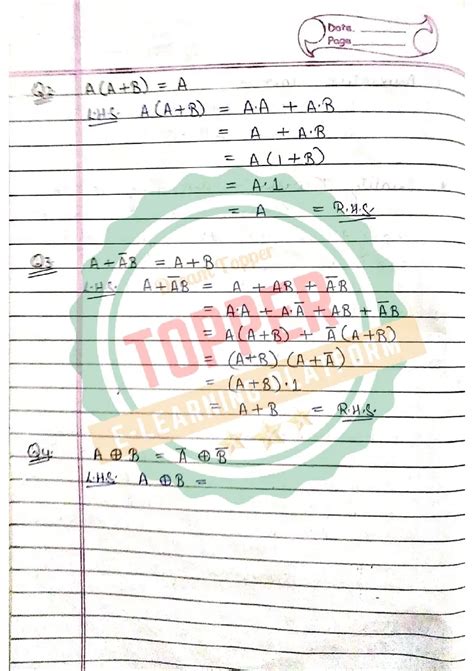 Date.
Page
Q2 A(A+B) = A
L.H.S. A(A+B) = A.A + A.B
= A + A.B
= A(1+B)
= A.1
= A = R.H.S.
Q3 A+A̅B = A+B
L.H.S. A+A̅B = A + AB + A̅B
= A.A + A.A̅ + AB + A̅B
= A(A+B) + A̅(A+B)
= (A+B) (A+A̅)
= (A+B).1
= A+B = R.H.S.
Q4. A ⊕ B = A̅ ⊕ B̅
L.H.S. A ⊕ B =
Topper
TOPPER
E-LEARNING PLATFORM